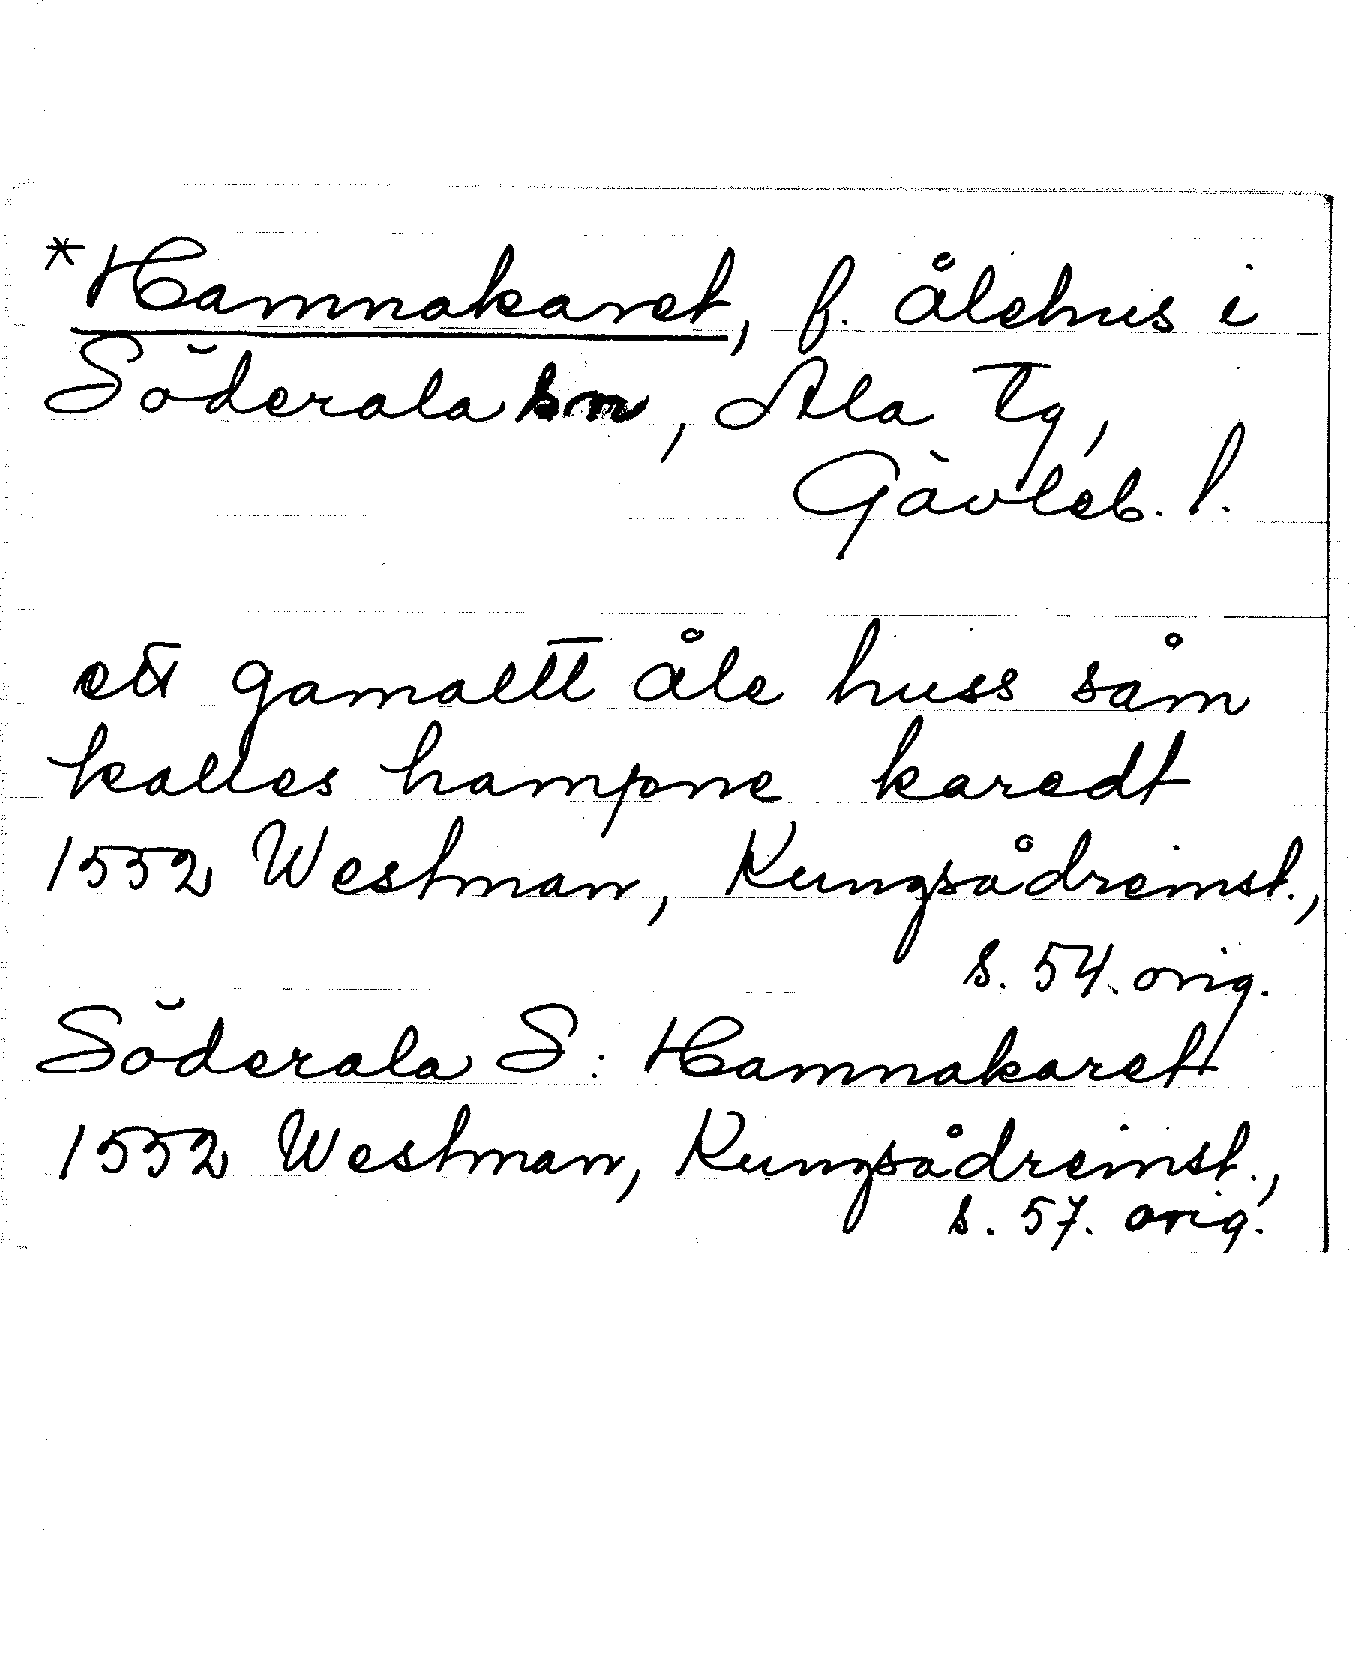 *Hamnakaret, f. ålehus i
Söderala sn, Ala Tg,
Gävleb. l.
ett gamaltt åle huss såm
kalles hampne karedt
1552 Westman, Kungsådreinst.,
s. 54. orig.
Söderala S: Hamnakaret
1552 Westman, Kungsådreinst.,
s. 57. orig.